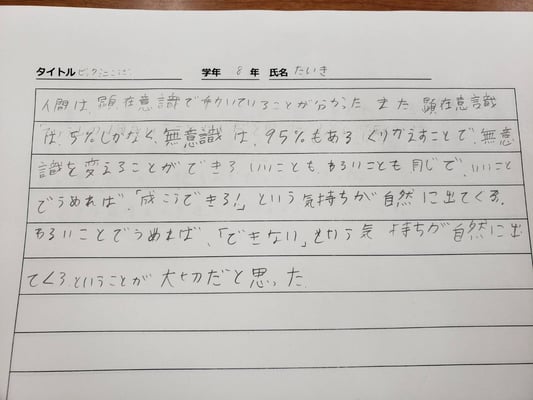 タイトル ビックミニここだ 学年 8 年 氏名 たいき
人間は、顕在意識で動いていることが分かった また 顕在意識
は、5%しかなく、無意識 は、95%もある くりかえすことで、無意
識を変えることができる いいことも、わるいことも 同じで、いいこと
でうめれば、「成こうできる!」という気持ちが自然に出てくる。
わるいことでうめれば、「できない」という気 持ちが自然に出
てくるということが 大切だと思った.